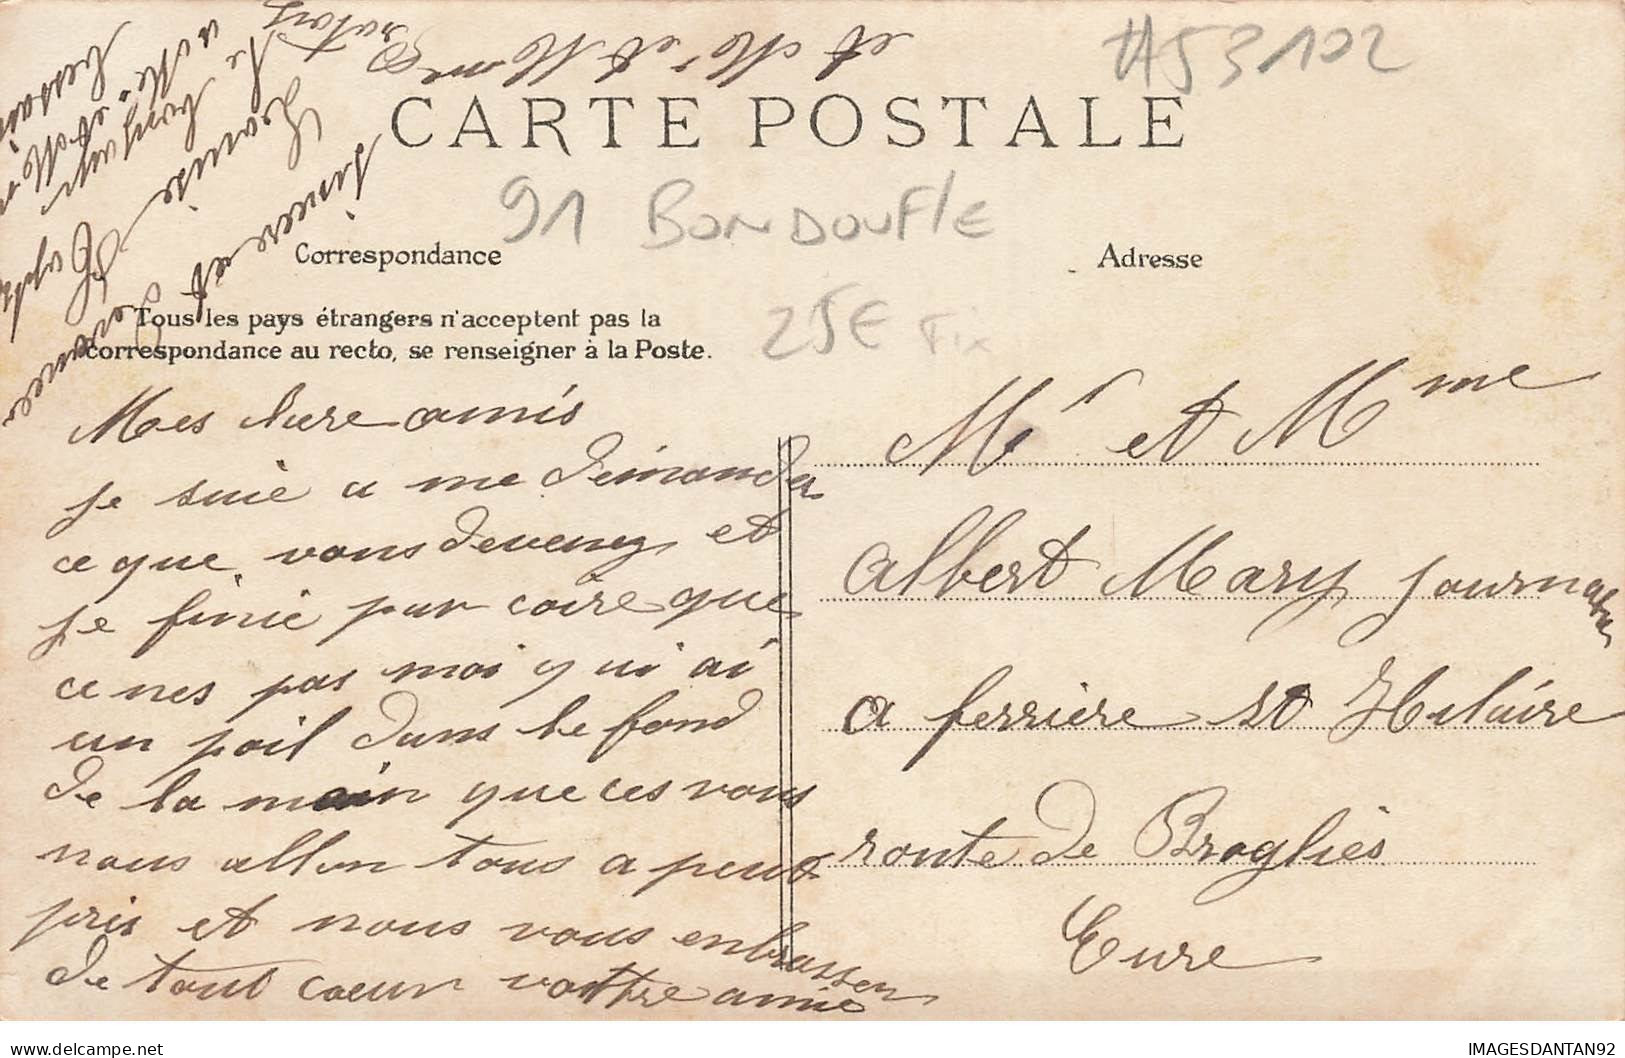 et Mr et Mme
#53102
CARTE POSTALE
91 BONDOUFLE
Correspondance
Adresse
Tous les pays étrangers n'acceptent pas la
correspondance au recto, se renseigner à la Poste.
25€ Fix
Mes chere amis
je suie a me demander
ce que vous devenez et
je finie par coire que
ce nes pas moi qui ai
un poil dans le fond
de la main que ces vous
nous allon tous a peut
pris et nous vous enbrassen
de tout coeur vottre amie
Mr et Mme
Albert Mary journalier
a ferriere st Hilaire
route de Broglies
Eure
sincere et
Louise
IMAGESDANTAN92
delcampe.net